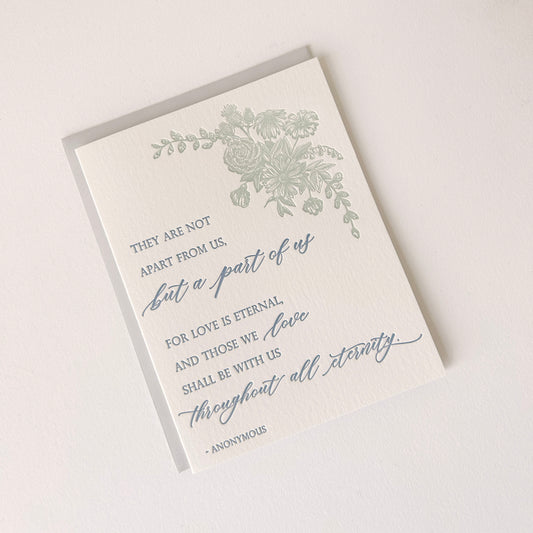 THEY ARE NOT
APART FROM US,
but a part of us
FOR LOVE IS ETERNAL,
AND THOSE WE love
SHALL BE WITH US
throughout all eternity.
- ANONYMOUS